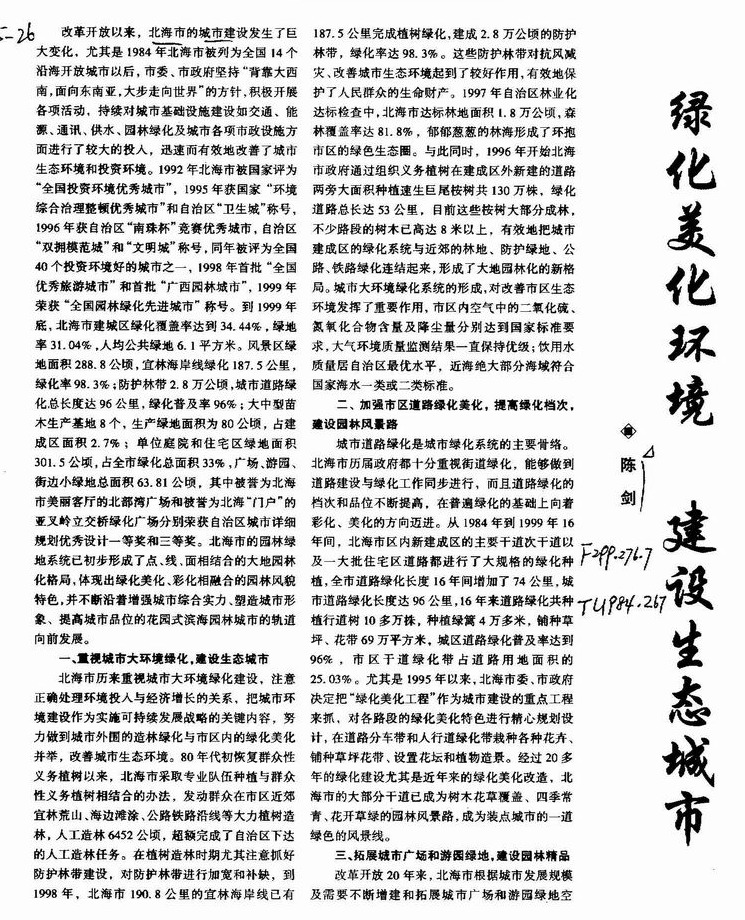 绿化美化环境 建设生态城市
陈剑
5-26
F299.276.7
TU984.267
改革开放以来，北海市的城市建设发生了巨
大变化，尤其是1984年北海市被列为全国14个
沿海开放城市以后，市委、市政府坚持“背靠大西
南，面向东南亚，大步走向世界”的方针，积极开展
各项活动，持续对城市基础设施建设如交通、能
源、通讯、供水、园林绿化及城市各项市政设施方
面进行了较大的投入，迅速而有效地改善了城市
生态环境和投资环境。1992年北海市被国家评为
“全国投资环境优秀城市”，1995年获国家“环境
综合治理整顿优秀城市”和自治区“卫生城”称号，
1996年获自治区“南珠杯”竞赛优秀城市，自治区
“双拥模范城”和“文明城”称号，同年被评为全国
40个投资环境好的城市之一，1998年首批“全国
优秀旅游城市”和首批“广西园林城市”，1999年
荣获“全国园林绿化先进城市”称号。到1999年
底，北海市建城区绿化覆盖率达到34.44%，绿地
率31.04%，人均公共绿地6.1平方米。风景区绿
地面积288.8公顷，宜林海岸线绿化187.5公里，
绿化率98.3%；防护林带2.8万公顷，城市道路绿
化总长度达96公里，绿化普及率96%；大中型苗
木生产基地8个，生产绿地面积为80公顷，占建
成区面积2.7%；单位庭院和住宅区绿地面积
301.5公顷，占全市绿化总面积33%，广场、游园、
街边小绿地总面积63.81公顷，其中被誉为北海
市美丽客厅的北部湾广场和被誉为北海“门户”的
亚叉岭立交桥绿化广场分别荣获自治区城市详细
规划优秀设计一等奖和三等奖。北海市的园林绿
地系统已初步形成了点、线、面相结合的大地园林
化格局，体现出绿化美化、彩化相融合的园林风貌
特色，并不断沿着增强城市综合实力、塑造城市形
象、提高城市品位的花园式滨海园林城市的轨道
向前发展。
一、重视城市大环境绿化，建设生态城市
北海市历来重视城市大环境绿化建设，注意
正确处理环境投入与经济增长的关系，把城市环
境建设作为实施可持续发展战略的关键内容，努
力做到城市外围的造林绿化与市区内的绿化美化
并举，改善城市生态环境。80年代初恢复群众性
义务植树以来，北海市采取专业队伍种植与群众
性义务植树相结合的办法，发动群众在市区近郊
宜林荒山、海边滩涂、公路铁路沿线等大力植树造
林，人工造林6452公顷，超额完成了自治区下达
的人工造林任务。在植树造林时期尤其注意抓好
防护林带建设，对防护林带进行加宽和补缺，到
1998年，北海市190.8公里的宜林海岸线已有
187.5公里完成植树绿化，建成2.8万公顷的防护
林带，绿化率达98.3%。这些防护林带对抗风减
灾、改善城市生态环境起到了较好作用，有效地保
护了人民群众的生命财产。1997年自治区林业化
达标检查中，北海市达标林地面积1.8万公顷，森
林覆盖率达81.8%，郁郁葱葱的林海形成了环抱
市区的绿色生态圈。与此同时，1996年开始北海
市政府通过组织义务植树在建成区外新建的道路
两旁大面积种植速生巨尾桉树共130万株，绿化
道路总长达53公里，目前这些桉树大部分成林，
不少路段的树木已高达8米以上，有效地把城市
建成区的绿化系统与近郊的林地、防护绿地、公
路、铁路绿化连结起来，形成了大地园林化的新格
局。城市大环境绿化系统的形成，对改善市区生态
环境发挥了重要作用，市区内空气中的二氧化硫、
氮氧化合物含量及降尘量分别达到国家标准要
求，大气环境质量监测结果一直保持优级；饮用水
质量居自治区最优水平，近海绝大部分海域符合
国家海水一类或二类标准。
二、加强市区道路绿化美化，提高绿化档次，
建设园林风景路
城市道路绿化是城市绿化系统的主要骨络。
北海市历届政府都十分重视街道绿化，能够做到
道路建设与绿化工作同步进行，而且道路绿化的
档次和品位不断提高，在普遍绿化的基础上向着
彩化、美化的方向迈进。从1984年到1999年16
年间，北海市区内新建成区的主要干道次干道以
及一大批住宅区道路都进行了大规格的绿化种
植，全市道路绿化长度16年间增加了74公里，城
市道路绿化长度达96公里，16年来道路绿化共种
植行道树10多万株，种植绿篱4万多米，铺种草
坪、花带69万平方米，城区道路绿化普及率达到
96%，市区干道绿化带占道路用地面积的
25.03%。尤其是1995年以来，北海市委、市政府
决定把“绿化美化工程”作为城市建设的重点工程
来抓，对各路段的绿化美化特色进行精心规划设
计，在道路分车带和人行道绿化带栽种各种花卉、
铺种草坪花带、设置花坛和植物造景。经过20多
年的绿化建设尤其是近年来的绿化美化改造，北
海市的大部分干道已成为树木花草覆盖、四季常
青、花开草绿的园林风景路，成为装点城市的一道
绿色的风景线。
三、拓展城市广场和游园绿地，建设园林精品
改革开放20年来，北海市根据城市发展规模
及需要不断增建和拓展城市广场和游园绿地空